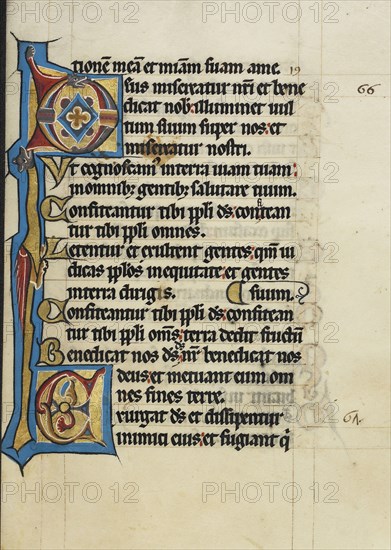 tionē meā et miām suam ame. 19
Dsus misereatur nr̄i et bene
dicat nob: illuminet uul
tum suum super nos: et
misereatur nostri.
Ut cognoscam̄ in terra uiam tuam:
in omnib; gentib; salutare tuum.
Confiteantur tibi pp̄li ds: confitean
tur tibi pp̄li omnes.
Letentur et exultent gentes, qm̄ iu
dicas pp̄los in equitate: et gentes
in terra dirigis. suum.
Confiteantur tibi pp̄li ds: confitean
tur tibi pp̄li oms: terra dedit fructū
Benedicat nos ds ds nr̄ benedicat nos
deus: et metuant eum om
nes fines terre.
Exurgat ds et dissipentur
inimici eius: et fugiant q̄
66
PHOTO 12